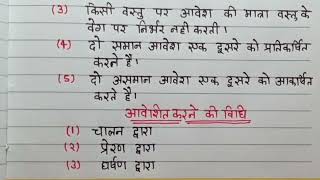 (3) किसी वस्तु पर आवेश की मात्रा वस्तु के
वेग पर निर्भर नही करती।
(4) दो समान आवेश एक दूसरे को प्रतिकर्षित
करते है।
(5) दो असमान आवेश एक दूसरे को आकर्षित
करते है।
आवेशित करने की विधि
(1) चालन द्वारा
(2) प्रेरण द्वारा
(3) घर्षण द्वारा